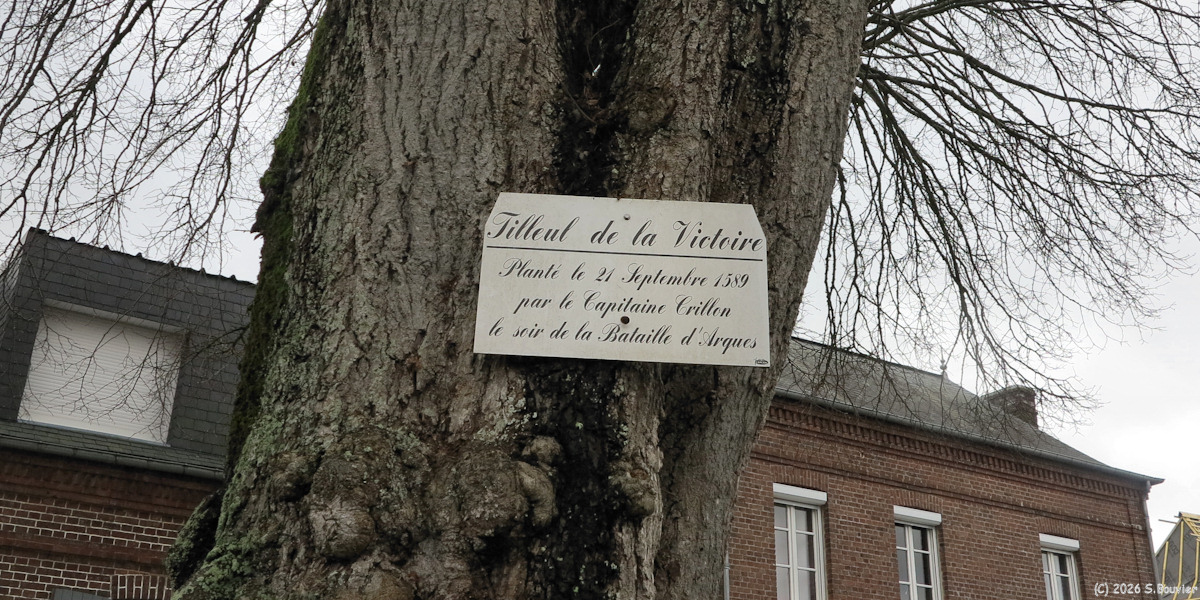 Tilleul de la Victoire
Planté le 21 Septembre 1589
par le Capitaine Crillon
le soir de la Bataille d'Arques
(C) 2026 S.Bouvier